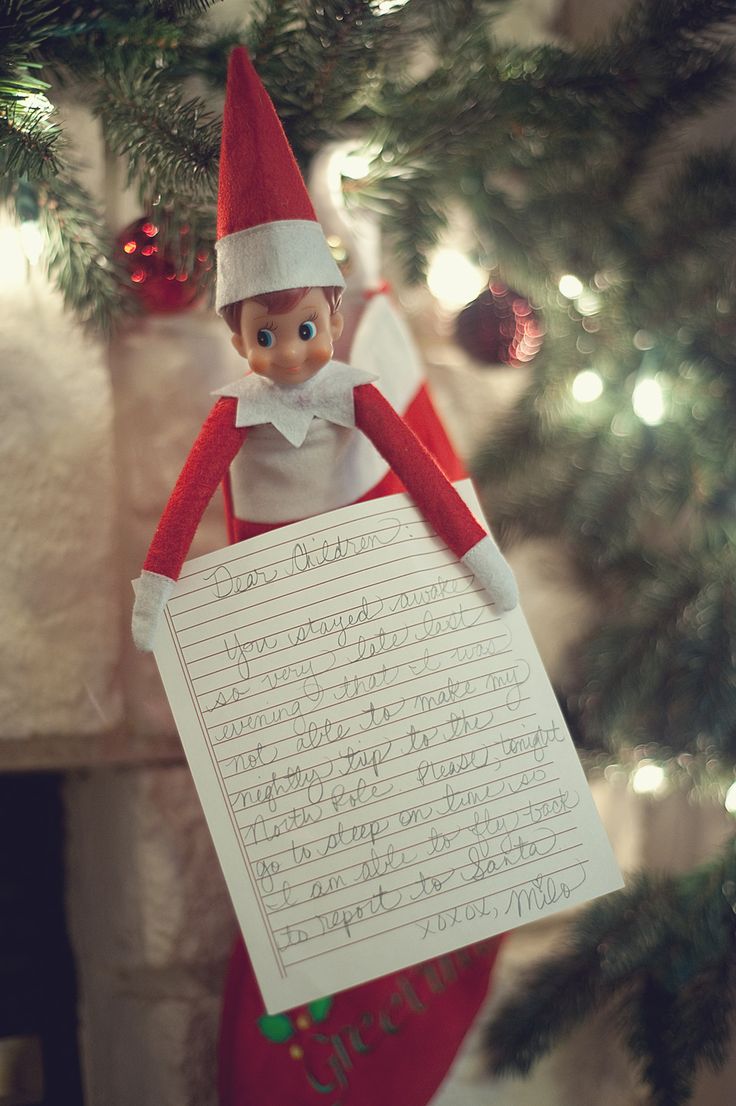 Dear Children:
You stayed awake
so very late last
evening that I was
not able to make my
nightly trip to the
North Pole. Please, tonight
go to sleep on time so
I am able to fly back
to report to Santa
xoxox, Milo